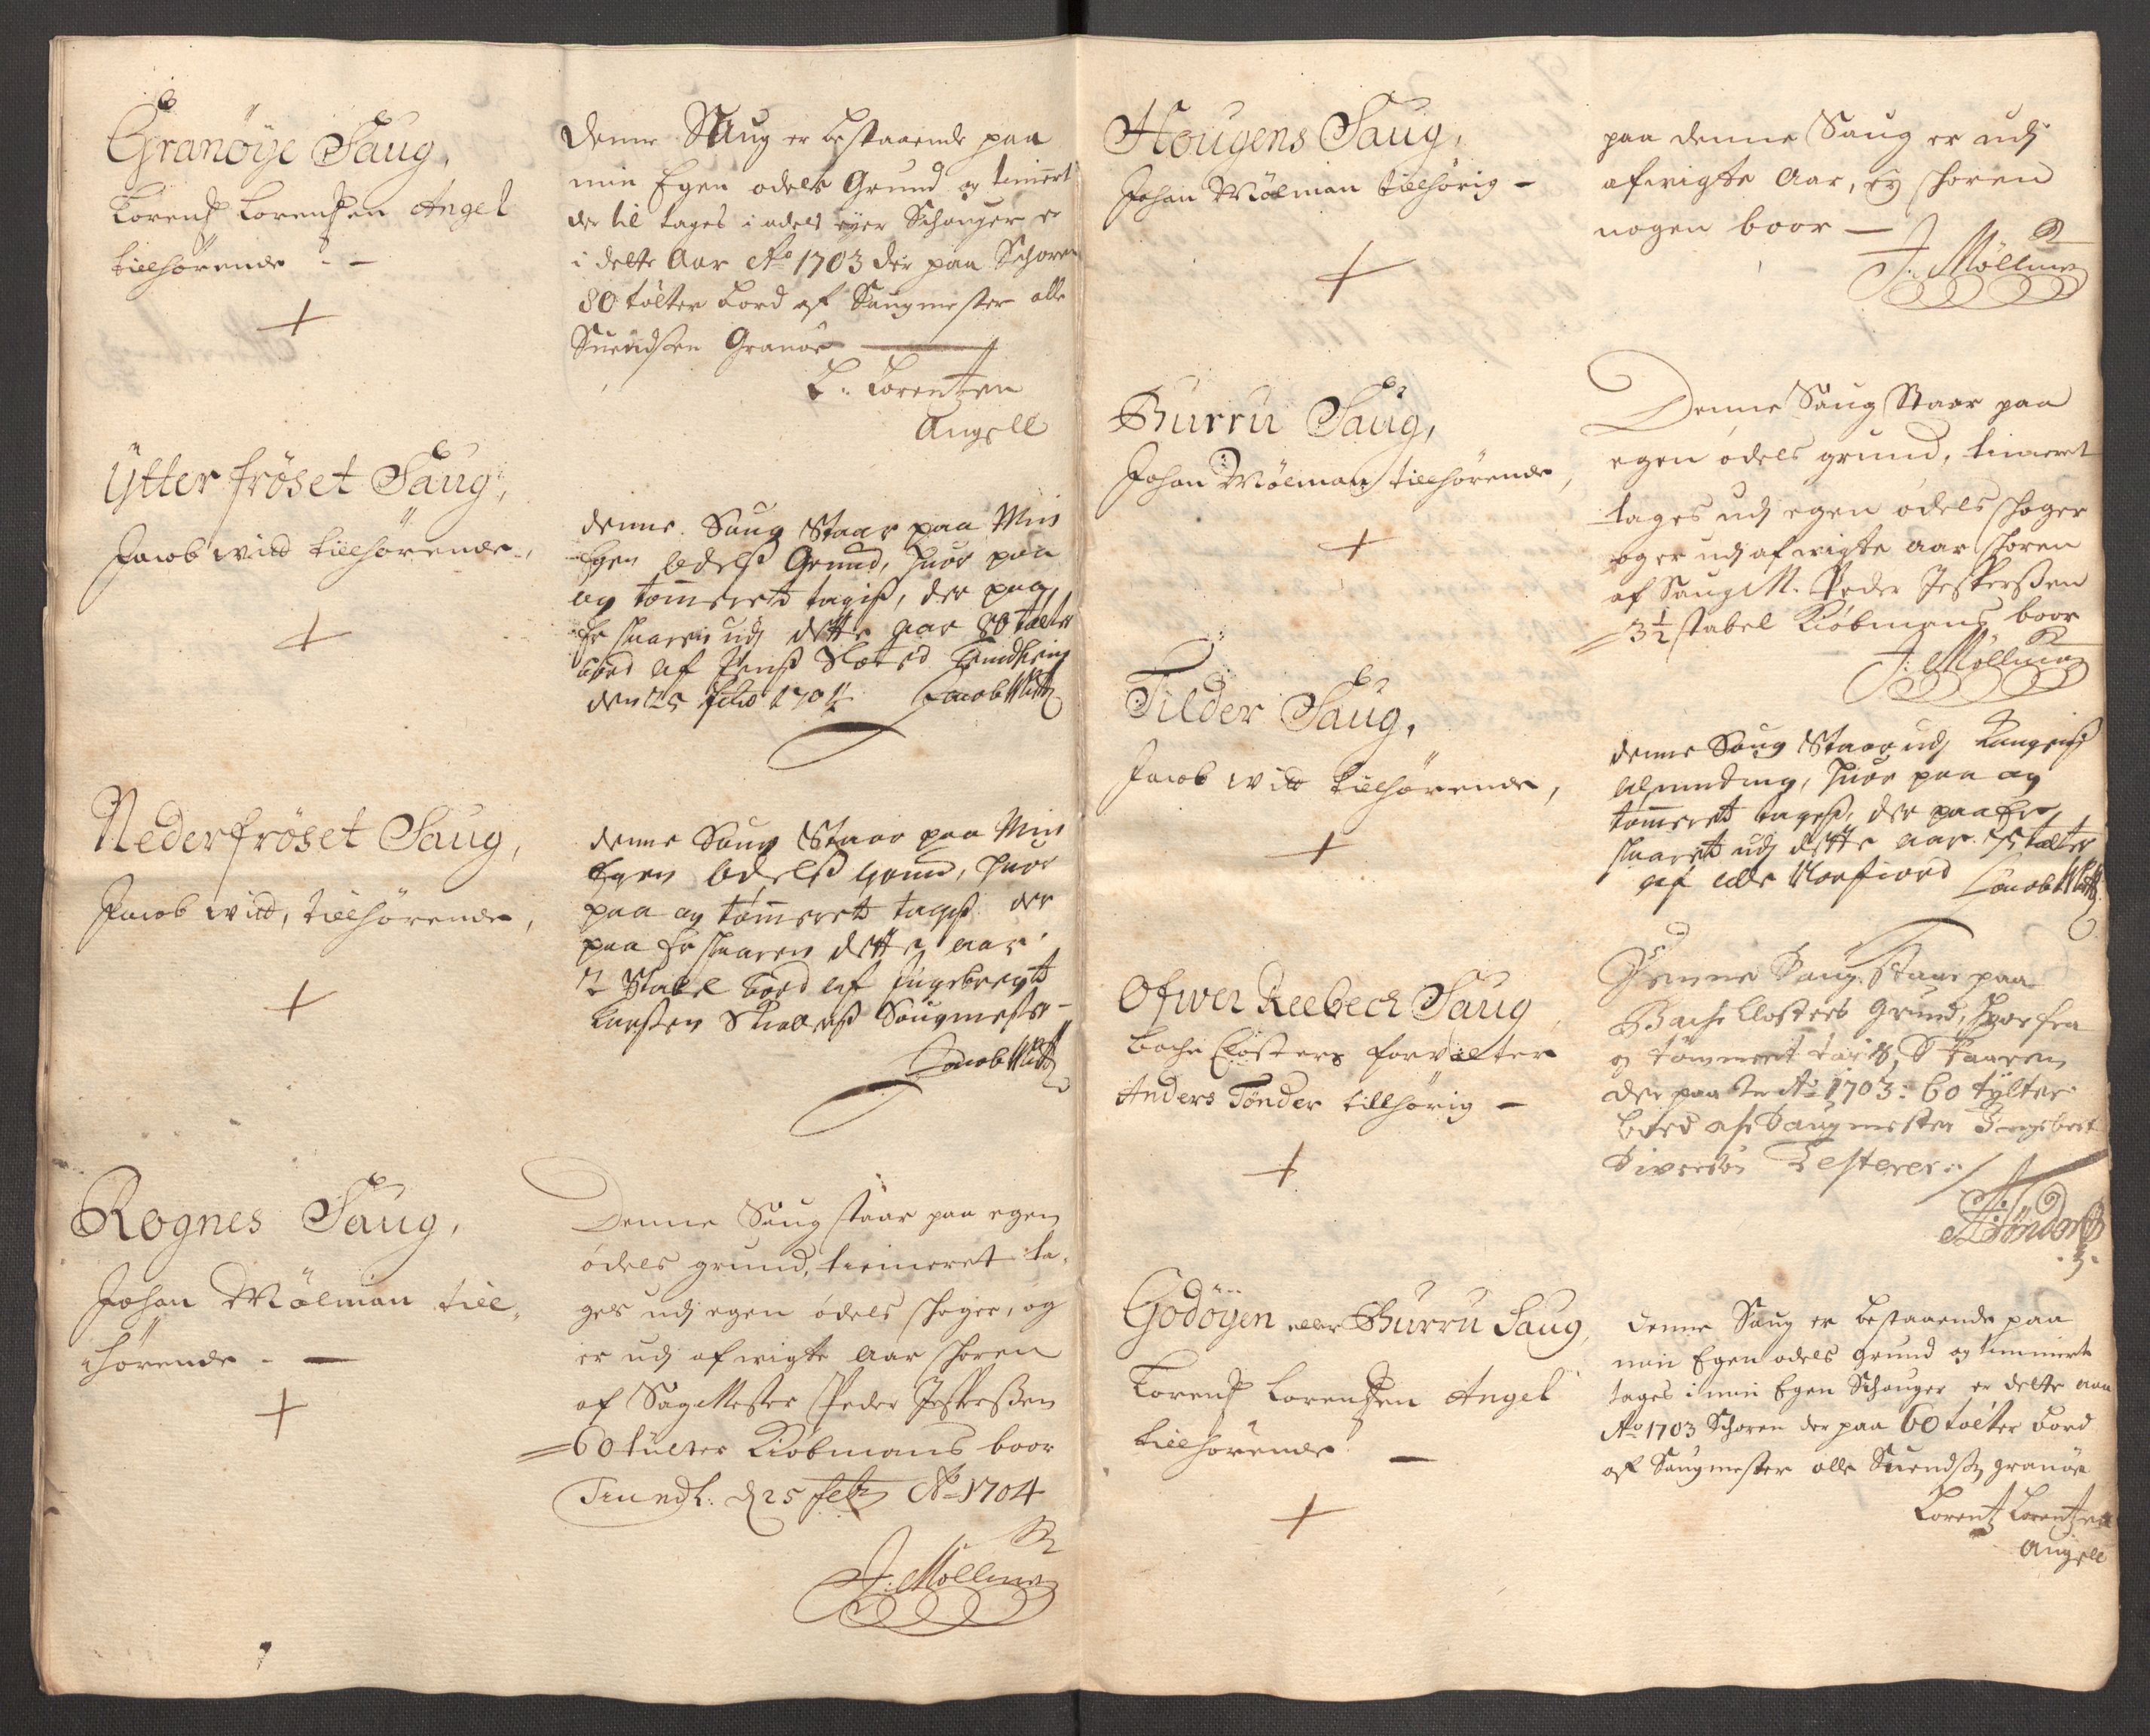 Granöÿe Saug,
Lorentz Lorentzen Angel
tilhörende -
Denne Saug er bestaaende paa
min Egen odels Grund og timert
der til tages i odels eÿer Schouger er
i dette Aar Ao 1703 der paa Schoren
80 tölter bord af Saugmester olle
Suendsen Granöe
L: Lorentzen
Angell
Ÿtter fröset Saug,
Jacob witt tilhörende,
denne Saug Staar paa Min
Egen Odelss Grund, huor paa
og tömmeret tagiss, der paa
Er skaaren udj dette aar 80 tolter
bord af Jenss Trundheim
den 25 febr 1704 Jacob Witt
Nederfröset Saug,
Jacob witt, tilhörende,
denne Saug Staar paa Min
Egen Odelss grund, huor
paa og tömmeret tagss der
paa Er skaaren dette aar
2 Stabel bord af Ingebregt
Larssen Saugmester
Jacob Witt
Rognes Saug,
Johan Mölman till-
hörende -
Denne Saug staar paa egen
ödels grund, timeret ta-
ges udj egen ödels skoger, og
er udj afvigte Aar skoren
af SagMester Peder Jespersen
60 tülter Kiöbmans boor
Trundh: d 25 feb Ao 1704
J: Möllman
Hougens Saug,
Johan Mölman tilhörig -
paa denne Saug er udj
afvigte Aar, eÿ skoren
nogen boor -
J: Möllman
Burru Saug,
Johan Mölman tilhörende,
Denne Saug Staar paa
egen ödels grund, timeret
tages udj egen ödels skoger
og er udj afvigte Aar skoren
af Saug M. Peder Jespersen
3½ stabel Kiöbmans boor
J: Möllman
Tilder Saug,
Jacob witt tilhörende,
denne Saug Staar udj Kongens
alminding, huor paa og
tömmeret tagess, der paa Er
skaaret udj dette aar 75 tolter
af olle
Jacob Witt
Ofwer Reebech Saug
Bache Closters forvalter
Anders Tönder tillhörig -
Denne Saug Staar paa
Bache Closters Grund, hvor fra
og tömmert tages, Skaaren
der paa in Ao 1703: 60 tÿlter
bord af Saugmester Ingebret
Sivertsön Testerer
ATönder
Godöÿen eller Burru Saug,
Lorentz Lorentzen Angel
tilhörende -
Denne Saug er bestaaende paa
min Egen odels grund og timmert
tages i min Egen Schouger er dette aar
Ao 1703 Schoren der paa 60 tolter bord
af Saugmester olle Suendsen granöe
Lorentz Lorentzen
Angell